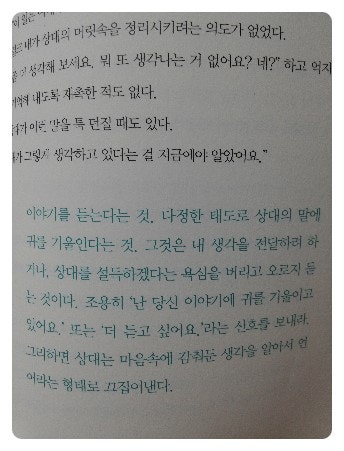 내가 상대의 머릿속을 정리시키려는 의도가 없었다.
더 생각해 보세요. 뭐 또 생각나는 거 없어요? 네?” 하고 억지
내도록 재촉한 적도 없다.
이런 말을 툭 던질 때도 있다.
그렇게 생각하고 있다는 걸 지금에야 알았어요.”
이야기를 듣는다는 것. 다정한 태도로 상대의 말에
귀를 기울인다는 것. 그것은 내 생각을 전달하려 하
거나, 상대를 설득하겠다는 욕심을 버리고 오로지 듣
는 것이다. 조용히 ‘난 당신 이야기에 귀를 기울이고
있어요.’ 또는 ‘더 듣고 싶어요.’라는 신호를 보내라.
그리하면 상대는 마음속에 감춰둔 생각을 알아서 언
어라는 형태로 끄집어낸다.